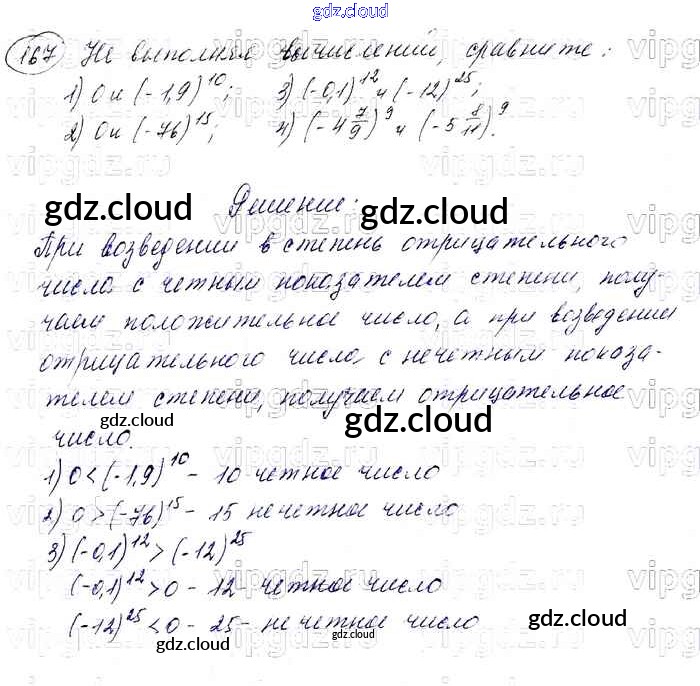 gdz.cloud
167 Не выполняя вычислений, сравните:
1) 0 и (-1,9)^10; 3) (-0,1)^12 и (-12)^25;
2) 0 и (-76)^15; 4) (-4 7/9)^9 и (-5 8/11)^9.
gdz.cloud Решение: gdz.cloud
При возведении в степень отрицательного
числа с четным показателем степени, полу-
чаем положительное число, а при возведении
отрицательного числа с нечетным показа-
телем степени, получаем отрицательное
число. gdz.cloud gdz.cloud
1) 0 < (-1,9)^10 - 10 четное число
2) 0 > (-76)^15 - 15 нечетное число
3) (-0,1)^12 > (-12)^25
(-0,1)^12 > 0 - 12 - четное число
(-12)^25 < 0 - 25 - нечетное число
gdz.cloud gdz.cloud gdz.cloud